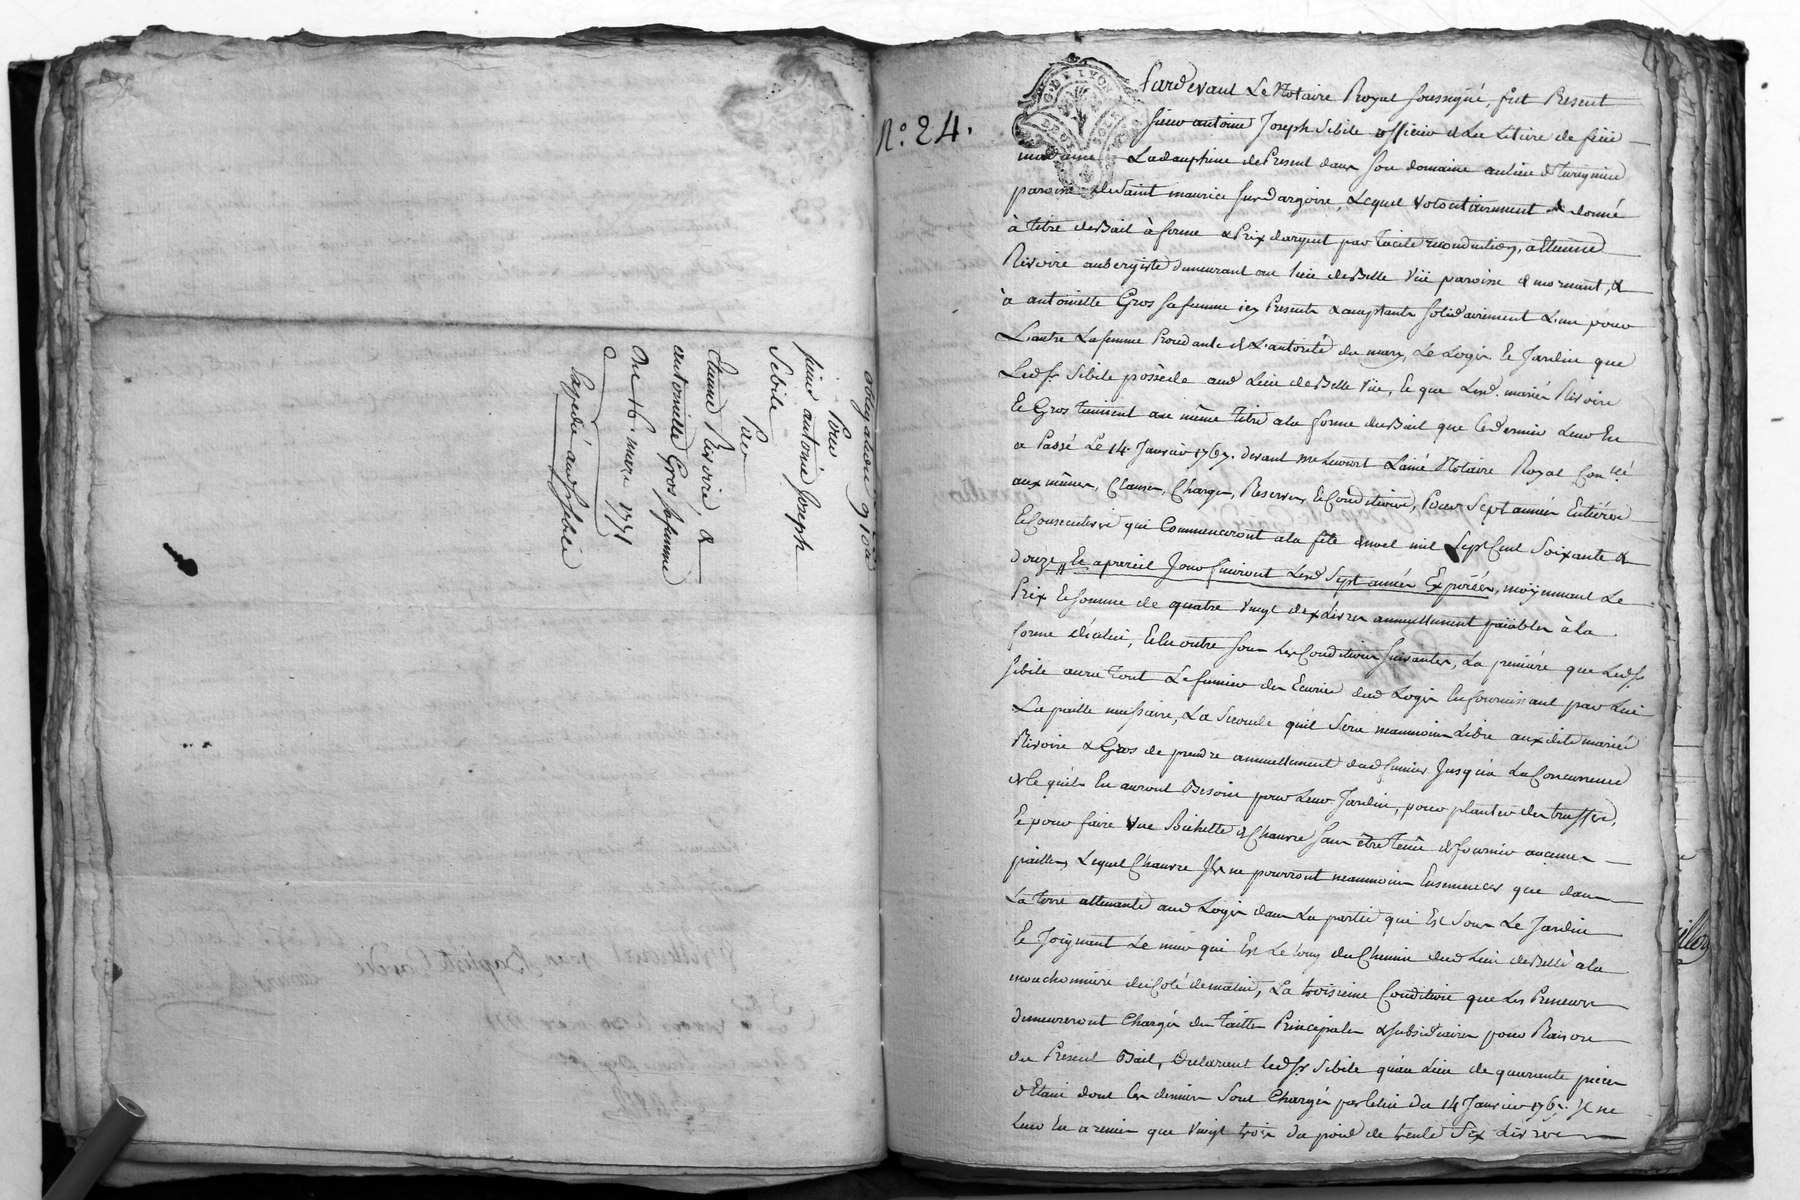 Pour
sieur antoine Joseph
Sibile
Par
Etienne Rivoire &
antoinette Gros sa femme
Du 16 mars 1771
Expedié aud sr sibile
N.º 24.
G. DE LYON
Pardevant Le Notaire Royal soussigné, fut Present
sieur antoine Joseph Sibile officier de La Litiere de feüe
madame La dauphine de Present dans son domaine au lieu
paroisse de Saint maurice sur dargoire, Lequel volontairement a donné
à titre de Bail à ferme & Prix dargent par tacite reconduction, a Etienne
Rivoire aubergiste demeurant au lieu de Belle vüe paroisse de mornant, &
à antoinette Gros sa femme icy Presents & acceptants solidairement L'un pour
L'autre La femme Procedante de L'autorité du mary, Le Logis & Jardin que
Led sr Sibile possède aud Lieu de Belle vüe, & que Lesd. mariés Rivoire
Et Gros tiennent au même titre a la forme du Bail que ce dernier Leur En
a Passé Le 14 Janvier 1767. devant me Lainé Notaire Royal Con.lé
aux mêmes, Clauses, Charges, Reserves & Conditions, Pour Sept années Entières
& Consecutives qui Commenceront a la fête de noel mil Sept Cent Soixante &
douze, & a pareil Jour finiront Lesd Sept années Expirées, moyennant Le
Prix & somme de quatre vingt dix Livres annuellement païables à la
forme d'icelui, & En outre sous les Conditions suivantes, La premiére que Led sr
sibile aura tout Le fumier des Ecuries dud Logis En fournissant par Lui
La paille necessaire, La Seconde qu'il Sera neanmoins Libre aux dits mariés
Rivoire & Gros de prendre annuellement dud fumier Jusqu'a La Concurrence
de Ce qu'ils En auront Besoin pour Leur Jardin, pour planter des truffes,
Et pour faire une Bichette de Chanvre sans être tenus de fournir aucunes
pailles, Lequel Chanvre Ils ne pourront neanmoins Ensemencer que dans
La terre attenante aud Logis dans La partie qui Est Sous Le Jardin
Et Joignant Le mur qui Est Le long du Chemin dud Lieu de Belle à la
mouchonniere du Coté de matin, La troisieme Condition que Les Preneurs
demeureront Chargés des tailles Principales & subsidiaires pour Raison
du Present Bail, Declarent Led sr Sibile qu'au Lieu de quarante pieces
d'Etain dont Les derniers Sont Chargés par Celui du 14 Janvier 1767. Il ne
Leur En a remis que vingt trois du poid de trente Six Livres